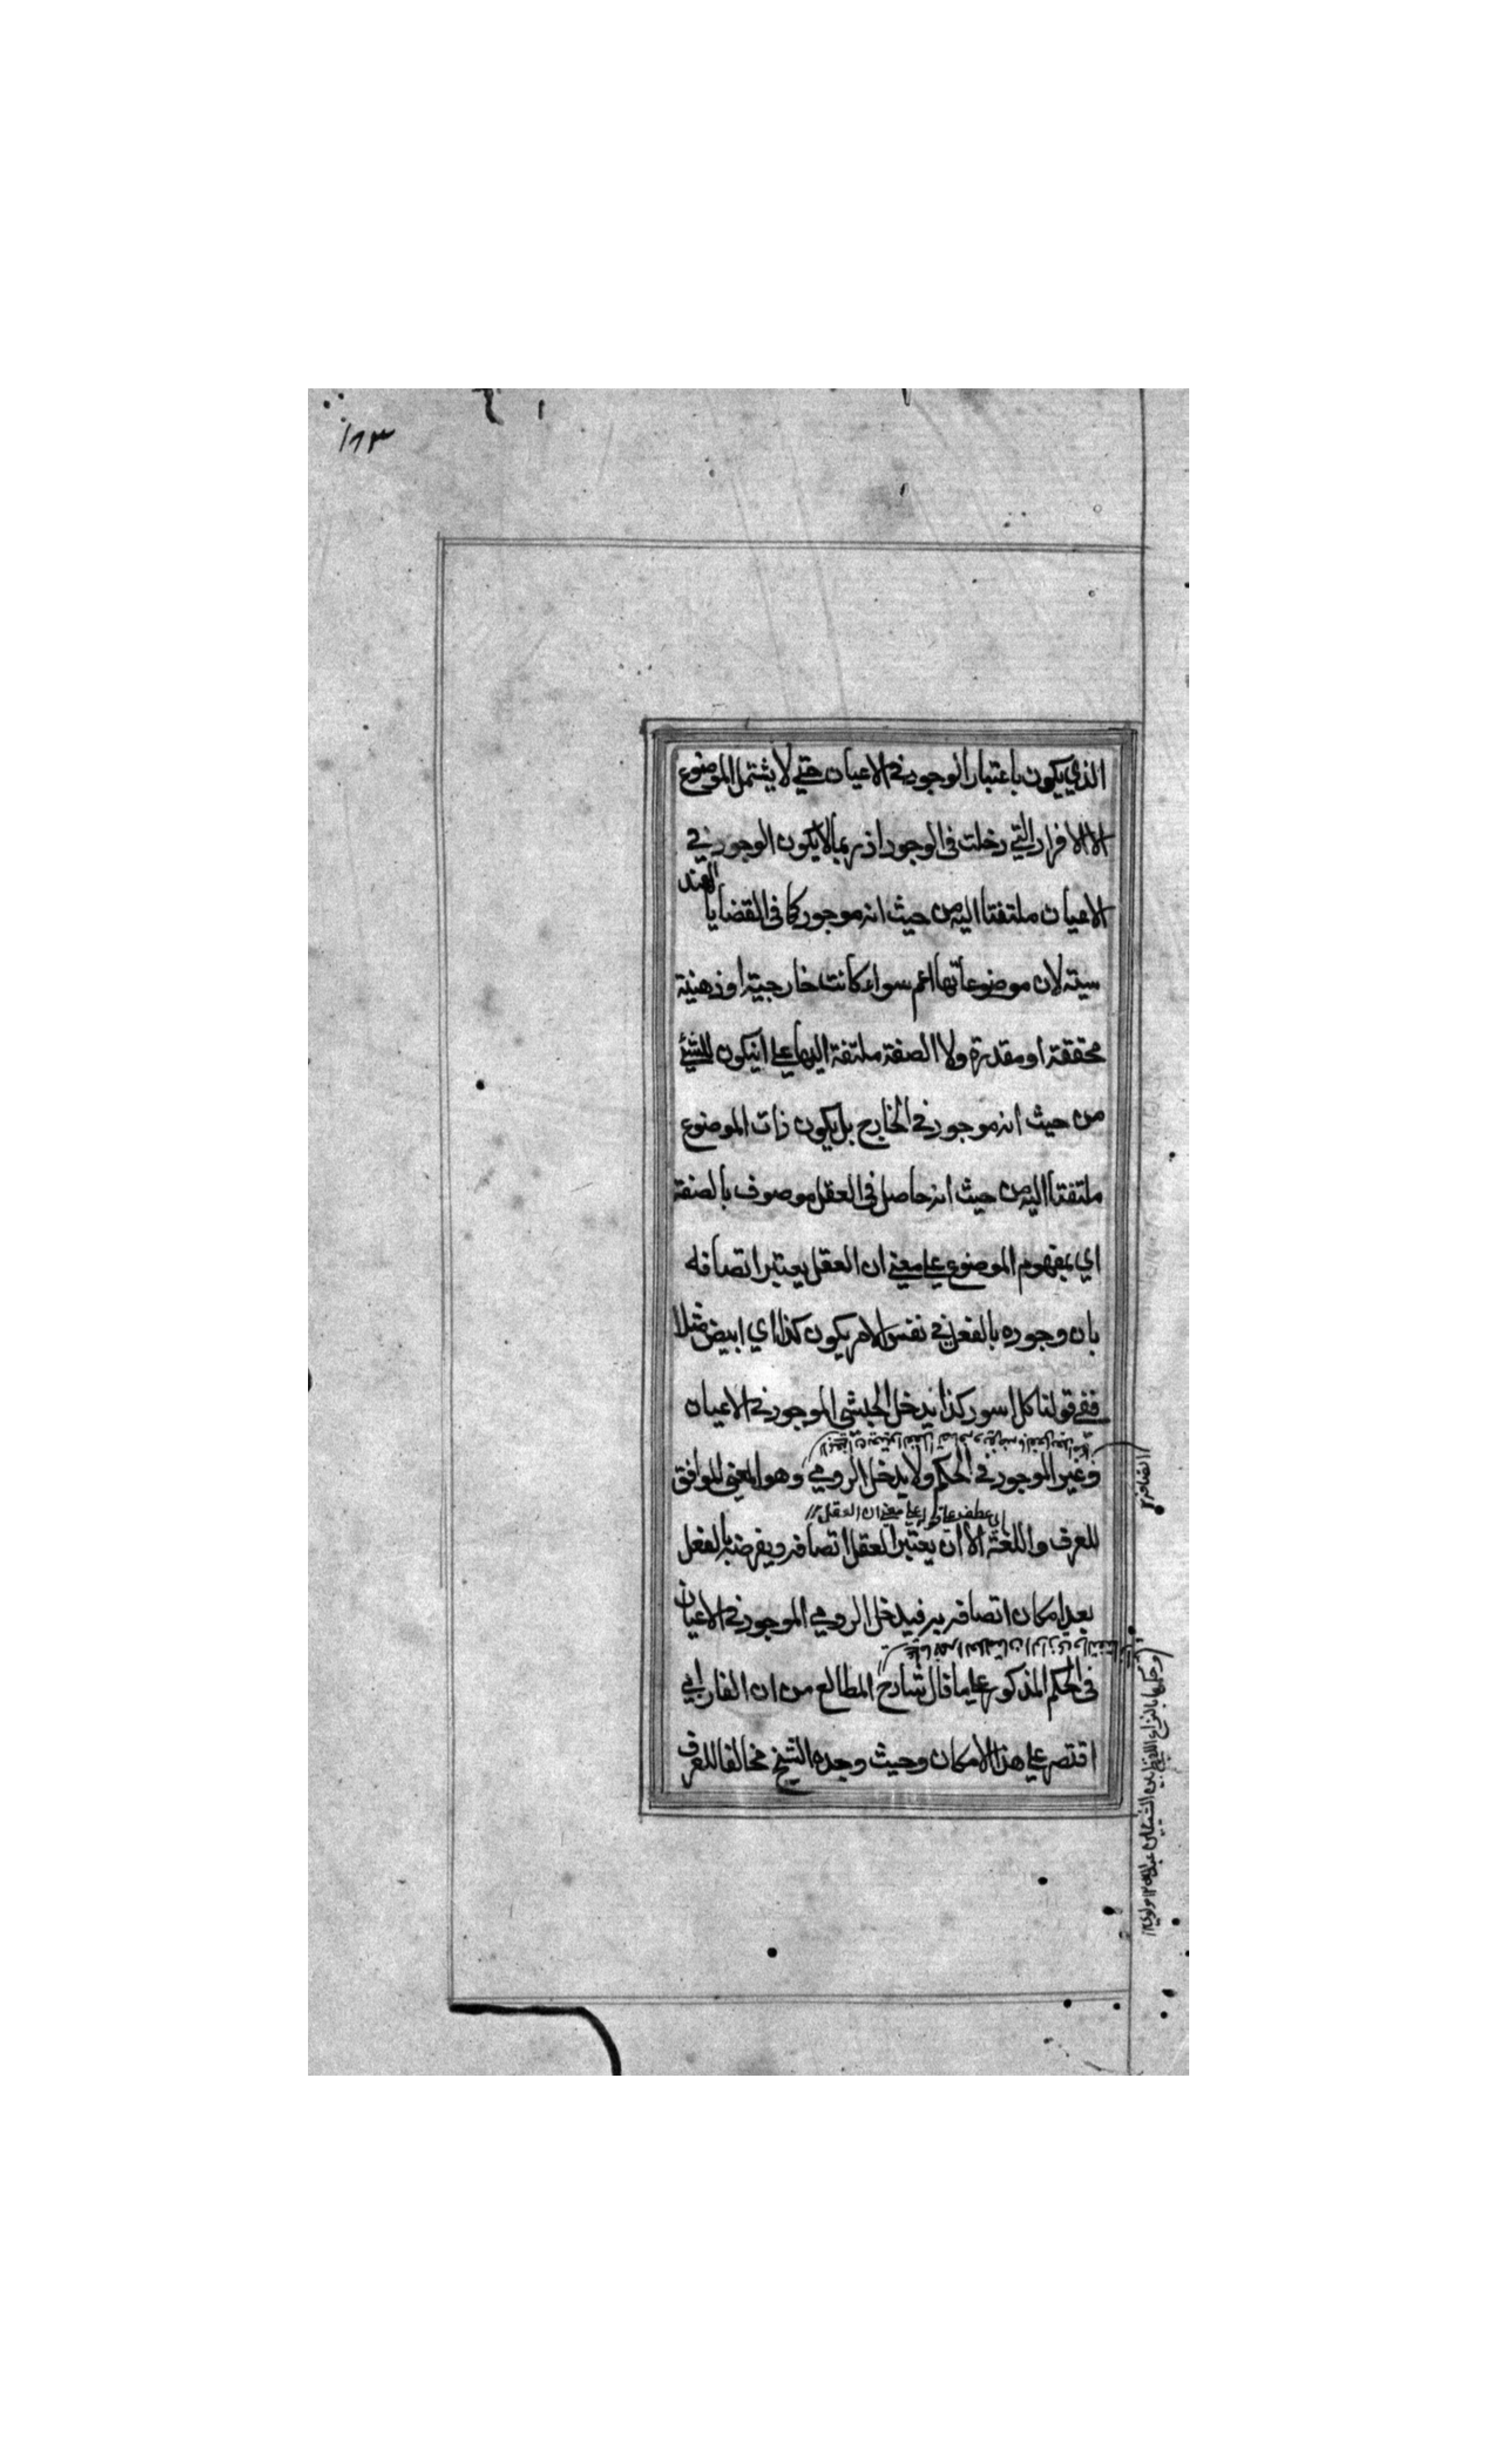 ١٨٣
الذي يكون باعتبار الوجود في الاعيان حتي لا يشتمل الموضوع
الا الافراد التي دخلت في الوجود اذ ربما لا يكون الوجود في
الاعيان ملتفتا اليه من حيث انه موجود كما في القضايا الهند
سيته لان موضوعاتها اعم سواء كانت خارجية او ذهنية
محققة او مقدرة ولا الصفة ملتفة اليها علي انيكون للشئ
من حيث انه موجود في الخارج بل يكون ذات الموضوع
ملتفتا اليه من حيث انه حاصل في العقل موصوف بالصفة
اي بمفهوم الموضوع علي معني ان العقل يعتبر اتصافه
بان وجوده بالفعل في نفس الامر يكون كذا اي ابيض مثلا
ففي قولنا كل اسود كذا يدخل الحبشي الموجود في الاعيان
وغير الموجود في الحكم ولا يدخل الرومي وهو المعني الموافق
اي عطف علي قوله علي معني ان العقل
للعرف واللغة الا ان يعتبر العقل اتصافه ويفرضه بالفعل
بعد امكان اتصافه به فيدخل الرومي الموجود في الاعيان
في الحكم المذكور علي ما قال شارح المطالع من ان الفارابي
اقتصر علي هذا الامكان وحيث وجده الشيخ مخالفا للعرف